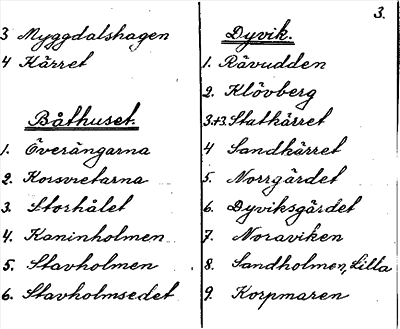 3.
3 Myggdalshagen
4 Kärret
Båthuset.
1. Överängarna
2. Korsvretarna
3. Storhålet
4. Kaninholmen
5. Stavholmen
6. Stavholmsedet
Dyvik.
1. Rävudden
2. Klövberg
3.+3. Statkärret
4 Sandkärret
5. Norrgärdet
6. Dyviksgärdet
7. Noraviken
8. Sandholmen, Lilla
9. Korpmaren